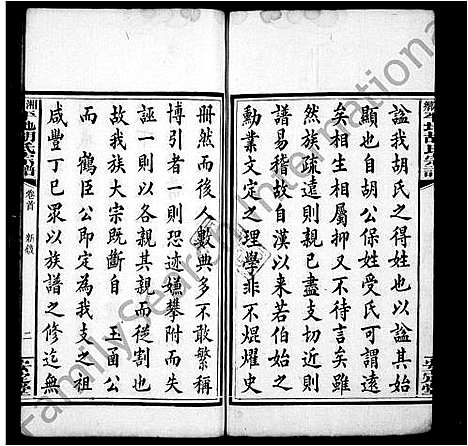 諡我胡氏之得姓也以諡其始
顯也自胡公保姓受氏可謂遠
矣相生相屬抑又不待言矣雖
然族疏遠則難稽支切近則
譜易稽故自漢以來若伯始之
勳業文定之理學非不焜燿史
冊然而後人數典多不敢繁稱
博引者一則恐迹嫌攀附而失
誣一則以各親其親而從割也
故我族大宗既斷自玉甬公
而鶴臣公即定為我支之祖
咸豐丁巳眾以族譜之修迄無
湘鄉平地胡氏宗譜
卷首
新敘
二
FamilySearch International